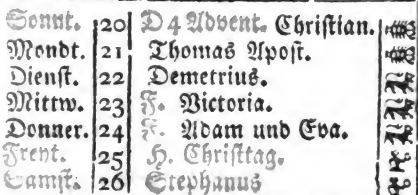 Sonnt. 20 D 4 Advent. Christian.
Mondt. 21 Thomas Apost.
Dienst. 22 Demetrius.
Mittw. 23 F. Victoria.
Donner. 24 F. Adam und Eva.
Freyt. 25 H. Christtag.
Samst. 26 Stephanus